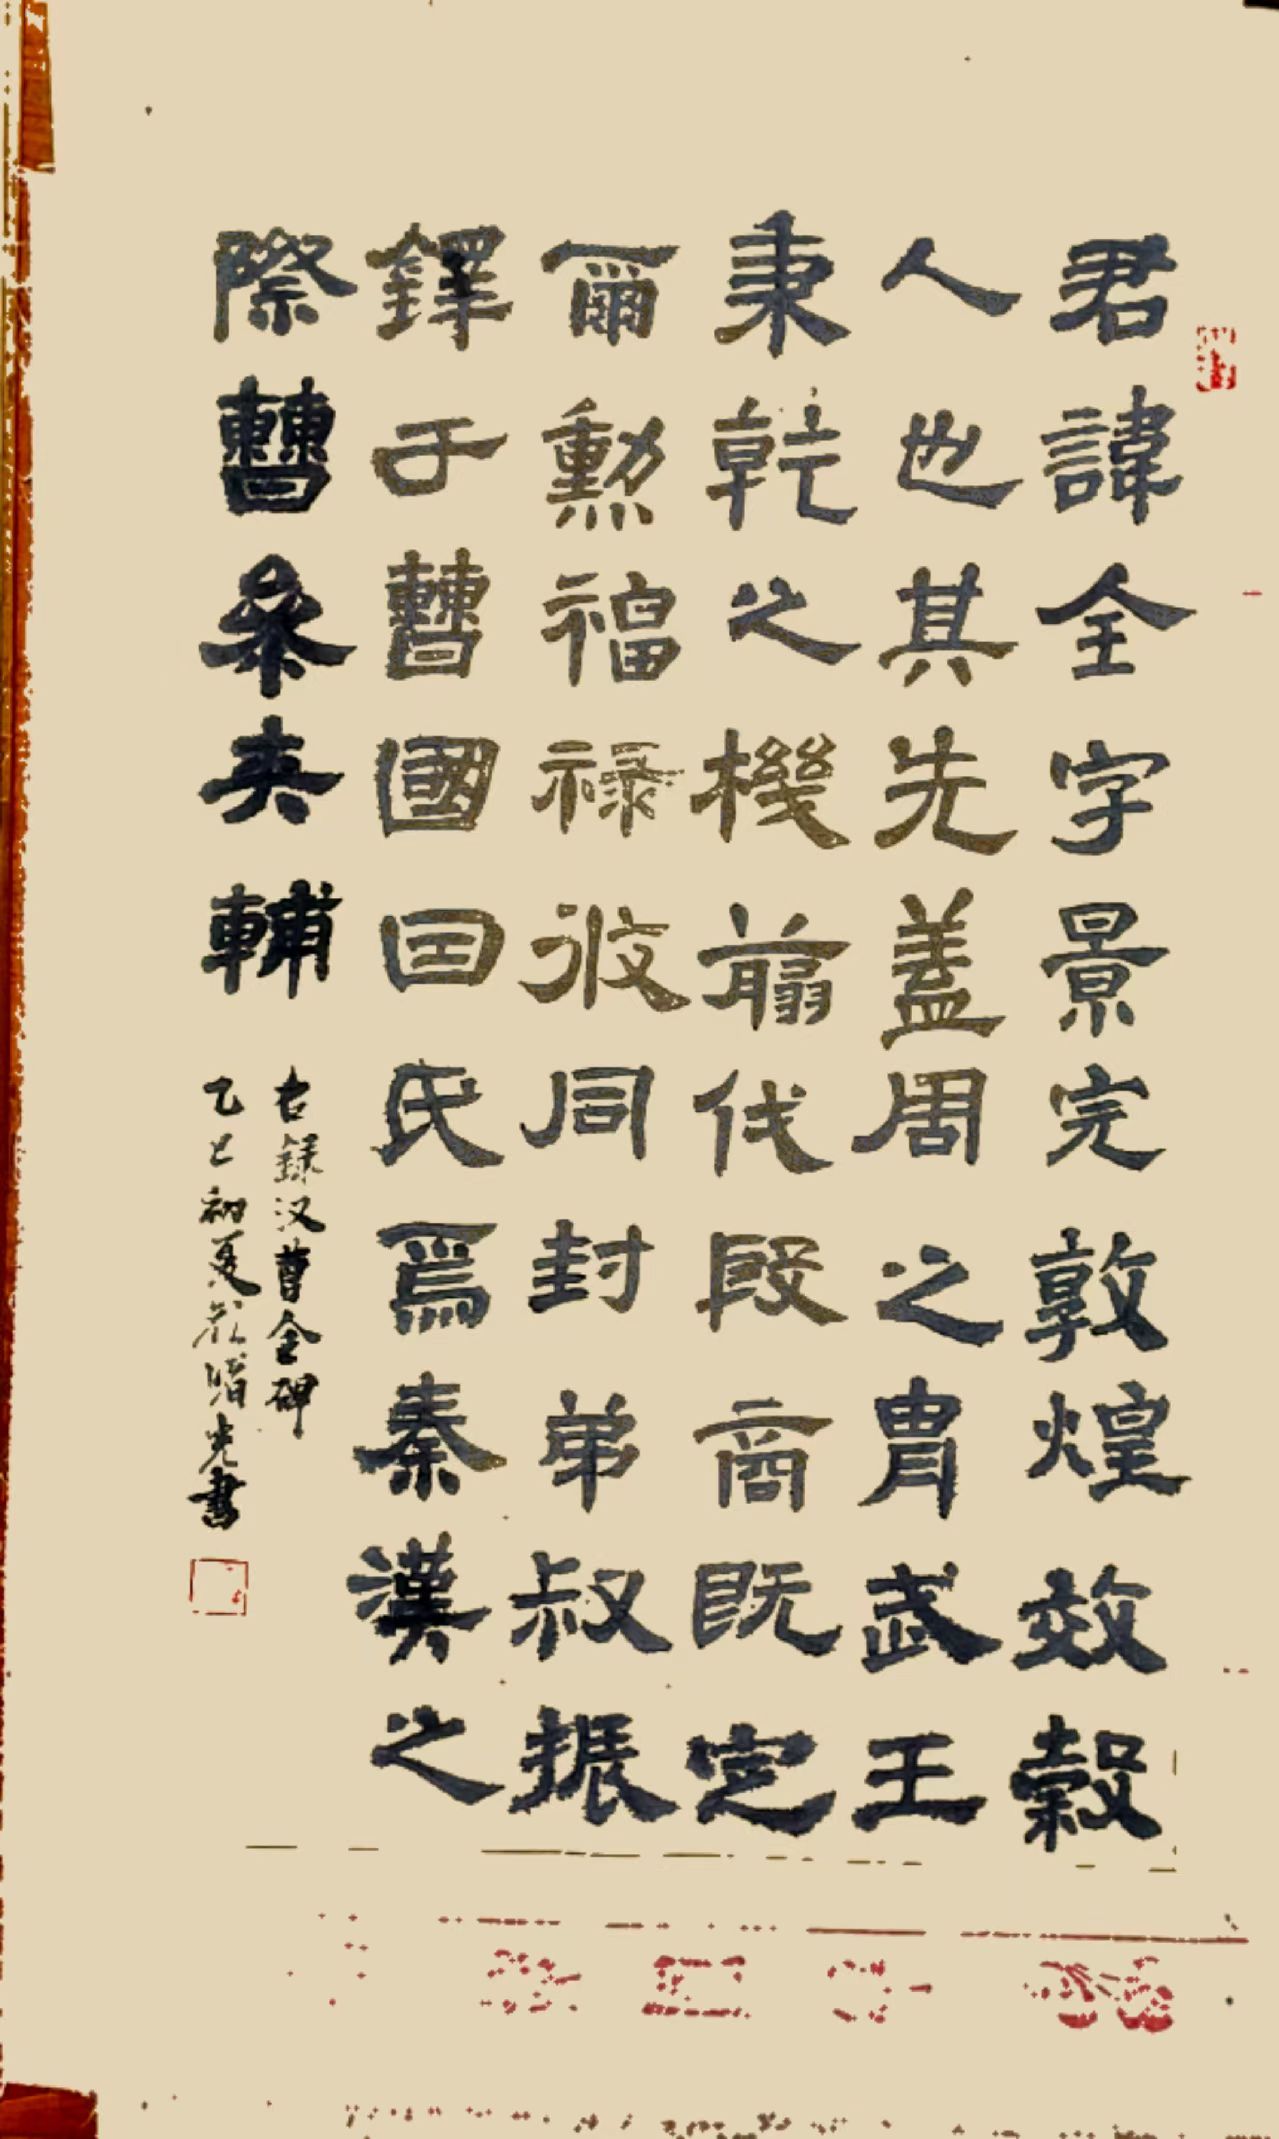 君諱全字景完敦煌效穀
人也其先蓋周之胄武王
秉乾之機翦伐殷商既定
爾勳福祿攸同封弟叔振
鐸于曹國因氏焉秦漢之
際曹參夾輔
右錄汉曹全碑
乙巳初夏光書